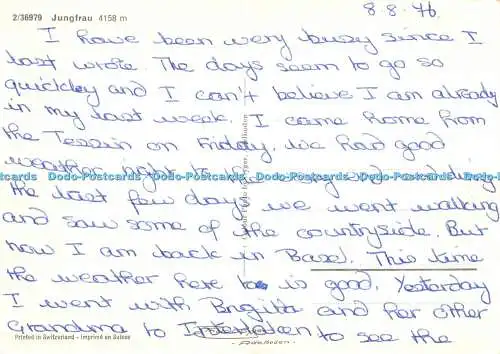 2/36979 Jungfrau 4158 m
8.8.76.
I have been very busy since I
last wrote. The days seem to go so
quickley and I can't believe I am already
in my last week. I came home from
the Tessin on Friday. We had good
weather right to the
Dodo-Postcards Dodo-Postcards Dodo-Postcards Dodo-Postcards Dodo-Postcards
the last few days we went walking
and saw some of the countryside. But
now I am back in Basel. This time
the weather here is good. Yesterday
I went with Brigitta and her other
Grandma to Interlaken to see the
Printed in Switzerland - Imprimé en Suisse